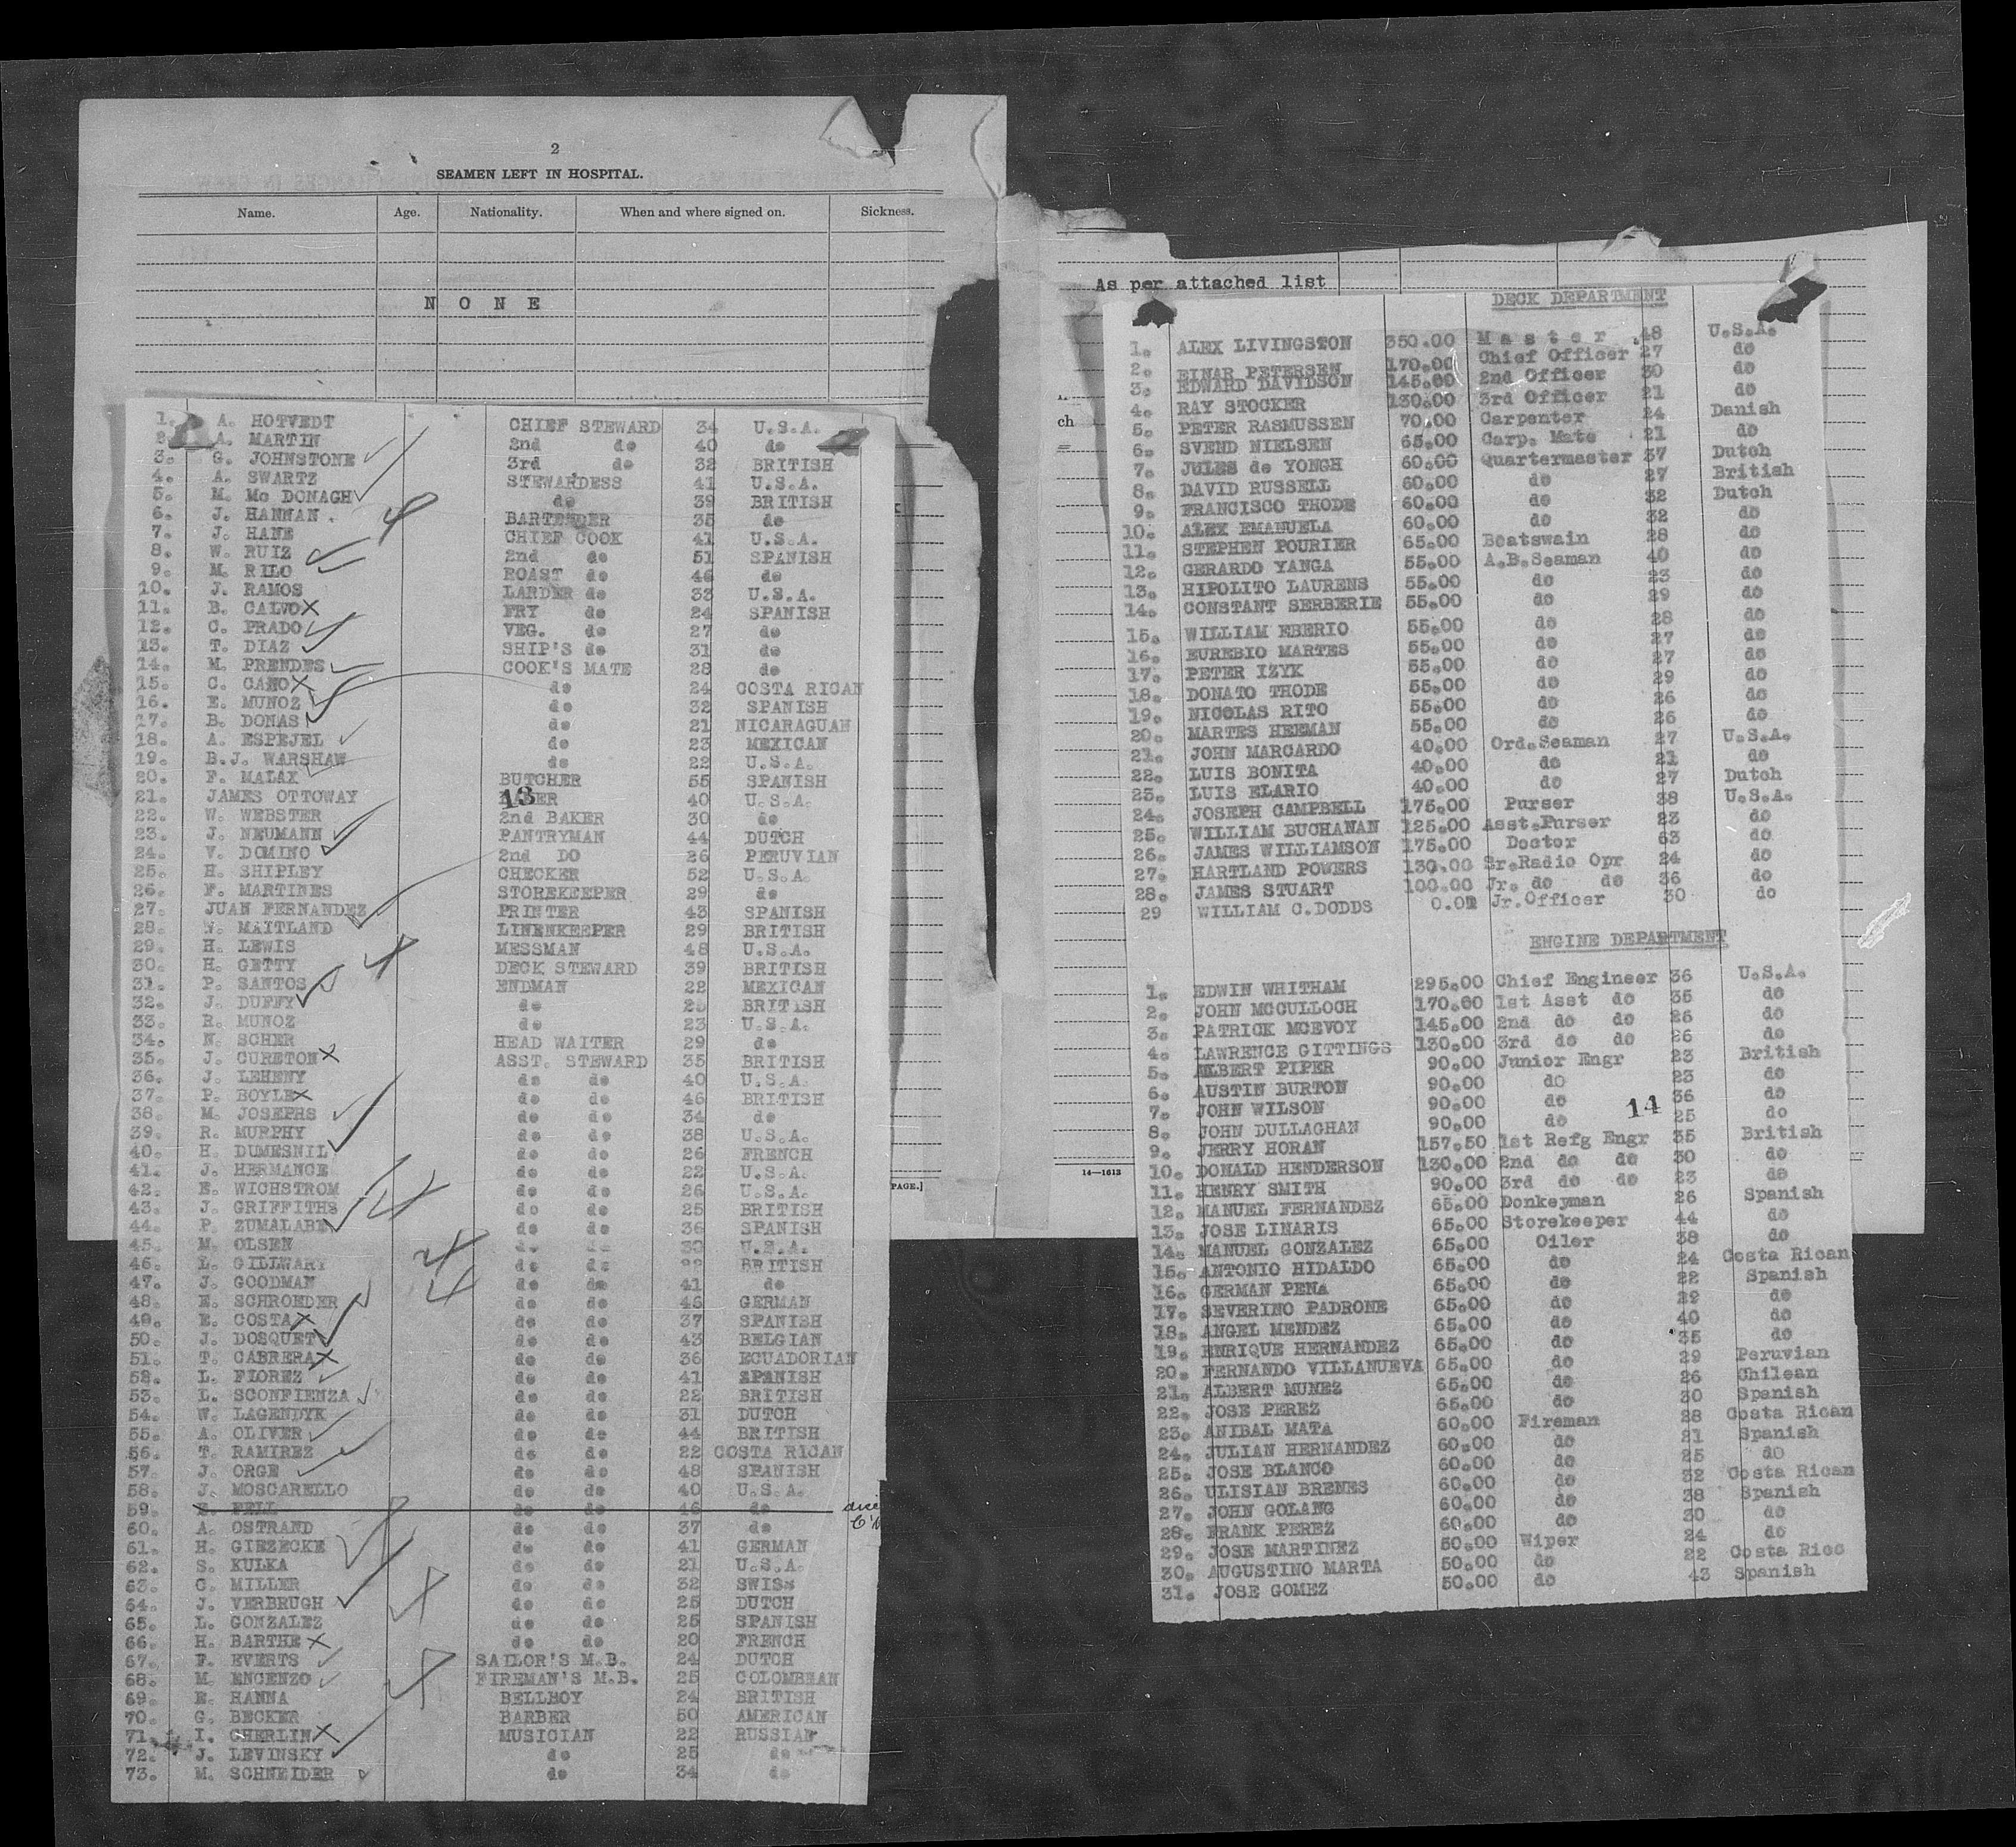 2
SEAMEN LEFT IN HOSPITAL.
Name. Age. Nationality. When and where signed on. Sickness.
N O N E
1. A. HOTVEDT CHIEF STEWARD 34 U.S.A.
2. A. MARTIN 2nd do 40 do
3. G. JOHNSTONE 3rd do 32 BRITISH
4. A. SWARTZ STEWARDESS 41 U.S.A.
5. M. Mc DONAGH do 39 BRITISH
6. J. HANNAN. BARTENDER 35 do
7. J. HANE CHIEF COOK 41 U.S.A.
8. W. RUIZ 2nd do 51 SPANISH
9. M. RILO ROAST do 46 do
10. J. RAMOS LARDER do 33 U.S.A.
11. B. CALVO X FRY do 24 SPANISH
12. C. PRADO VEG. do 27 do
13. T. DIAZ SHIP'S do 31 do
14. M. PRENDES COOK'S MATE 28 do
15. C. CANO X do 24 COSTA RICAN
16. E. MUNOZ do 32 SPANISH
17. B. DONAS do 21 NICARAGUAN
18. A. ESPEJEL do 23 MEXICAN
19. B.J. WARSHAW do 22 U.S.A.
20. F. MALAX BUTCHER 55 SPANISH
21. JAMES OTTOWAY BAKER 40 U.S.A.
13
22. W. WEBSTER 2nd BAKER 30 do
23. J. NEUMANN PANTRYMAN 44 DUTCH
24. V. DOMINO 2nd DO 26 PERUVIAN
25. H. SHIPLEY CHECKER 52 U.S.A
26. F. MARTINES STOREKEEPER 29 do
27. JUAN FERNANDEZ PRINTER 43 SPANISH
28. W. MAITLAND LINENKEEPER 29 BRITISH
29. H. LEWIS MESSMAN 48 U.S.A.
30. H. GETTY DECK STEWARD 39 BRITISH
31. P. SANTOS ENDMAN 22 MEXICAN
32. J. DUFFY do 25 BRITISH
33. R. MUNOZ do 23 U.S.A.
34. N. SCHER HEAD WAITER 29 do
35. J. CURETON X ASST. STEWARD 35 BRITISH
36. J. LEHENY do do 40 U.S.A.
37. P. BOYLE X do do 46 BRITISH
38. M. JOSEPHS do do 34 do
39. R. MURPHY do do 38 U.S.A.
40. H. DUMESNIL do do 26 FRENCH
41. J. HERMANCE do do 22 U.S.A.
42. E. WICHSTROM do do 26 U.S.A.
43. J. GRIFFITHS do do 25 BRITISH
44. P. ZUMALABE do do 36 SPANISH
45. M. OLSEN do do 30 U.S.A.
46. L. GILLWARY do do BRITISH
47. J. GOODMAN do do 41 do
48. E. SCHROEDER do do 45 GERMAN
49. E. COSTA X do do 37 SPANISH
50. J. DOSQUET do do 43 BELGIAN
51. T. CABRERA X do do 36 ECUADORIAN
52. L. FLOREZ do do 41 SPANISH
53. L. SCONFIENZA do do 22 BRITISH
54. W. LAGENDYK do do 31 DUTCH
55. A. OLIVER do do 44 BRITISH
56. T. RAMIREZ do do 22 COSTA RICAN
57. J. ORGE do do 48 SPANISH
58. J. MOSCARELLO do do 40 U.S.A.
59. E. FELL do do 46 do
60. A. OSTRAND do do 37 do
61. H. GIEZECKE do do 41 GERMAN
62. S. KULKA do do 21 U.S.A.
63. C. MILLER do do 32 SWISS
64. J. VERBRUGH do do 25 DUTCH
65. L. GONZALEZ do do 25 SPANISH
66. H. BARTHE X do do 20 FRENCH
67. F. EVERTS SAILOR'S M.B. 24 DUTCH
68. M. ENCENZO FIREMAN'S M.B. 25 COLOMBEAN
69. E. HANNA BELLBOY 24 BRITISH
70. G. BECKER BARBER 50 AMERICAN
71. I. CHERLIN X MUSICIAN 22 RUSSIAN
72. J. LEVINSKY do 25 do
73. M. SCHNEIDER do 34 do
PAGE.]
ch
14—1613
As per attached list
DECK DEPARTMENT
1. ALEX LIVINGSTON 350.00 M a s t e r 48 U.S.A.
2. EINAR PETERSEN 170.00 Chief Officer 27 do
3. EDWARD DAVIDSON 145.00 2nd Officer 30 do
4. RAY STOCKER 130.00 3rd Officer 21 do
5. PETER RASMUSSEN 70.00 Carpenter 24 Danish
6. SVEND NIELSEN 65.00 Carp. Mate 21 do
7. JULES de YONGH 60.00 Quartermaster 37 Dutch
8. DAVID RUSSELL 60.00 do 27 British
9. FRANCISCO THODE 60.00 do 32 Dutch
10. ALEX EMANUELA 60.00 do 32 do
11. STEPHEN POURIER 65.00 Boatswain 28 do
12. GERARDO YANGA 55.00 A.B.Seaman 40 do
13. HIPOLITO LAURENS 55.00 do 23 do
14. CONSTANT SERBERIE 55.00 do 29 do
15. WILLIAM EBERIO 55.00 do 28 do
16. EUREBIO MARTES 55.00 do 27 do
17. PETER IZYK 55.00 do 27 do
18. DONATO THODE 55.00 do 29 do
19. NICOLAS RITO 55.00 do 26 do
20. MARTES HEEMAN 55.00 do 26 do
21. JOHN MARCARDO 40.00 Ord.Seaman 27 U.S.A.
22. LUIS BONITA 40.00 do 21 do
23. LUIS ELARIO 40.00 do 27 Dutch
24. JOSEPH CAMPBELL 175.00 Purser 38 U.S.A.
25. WILLIAM BUCHANAN 125.00 Asst.Purser 23 do
26. JAMES WILLIAMSON 175.00 Doctor 63 do
27. HARTLAND POWERS 130.00 Sr.Radio Opr 24 do
28. JAMES STUART 100.00 Jr. do do 36 do
29 WILLIAM C.DODDS 0.01 Jr.Officer 30 do
ENGINE DEPARTMENT
1. EDWIN WHITHAM 295.00 Chief Engineer 36 U.S.A.
2. JOHN MCCULLOCH 170.00 1st Asst do 35 do
3. PATRICK MCEVOY 145.00 2nd do do 26 do
4. LAWRENCE GITTINGS 130.00 3rd do do 26 do
5. ALBERT PIPER 90.00 Junior Engr 23 British
6. AUSTIN BURTON 90.00 do 23 do
7. JOHN WILSON 90.00 do 36 do
14
8. JOHN DULLAGHAN 90.00 do 25 do
9. JERRY HORAN 157.50 1st Refg Engr 35 British
10. DONALD HENDERSON 130.00 2nd do do 30 do
11. HENRY SMITH 90.00 3rd do do 23 do
12. MANUEL FERNANDEZ 65.00 Donkeyman 26 Spanish
13. JOSE LINARIS 65.00 Storekeeper 44 do
14. MANUEL GONZALEZ 65.00 Oiler 38 do
15. ANTONIO HIDALDO 65.00 do 24 Costa Rican
16. GERMAN PENA 65.00 do 22 Spanish
17. SEVERINO PADRONE 65.00 do 29 do
18. ANGEL MENDEZ 65.00 do 40 do
19. ENRIQUE HERNANDEZ 65.00 do 35 do
20. FERNANDO VILLANUEVA 65.00 do 29 Peruvian
21. ALBERT MUNEZ 65.00 do 26 Chilean
22. JOSE PEREZ 65.00 do 30 Spanish
23. ANIBAL MATA 60.00 Fireman 28 Costa Rican
24. JULIAN HERNANDEZ 60.00 do 21 Spanish
25. JOSE BLANCO 60.00 do 25 do
26. ULISIAN BRENES 60.00 do 32 Costa Rican
27. JOHN GOLANG 60.00 do 38 Spanish
28. FRANK PEREZ 60.00 do 30 do
29. JOSE MARTINEZ 50.00 Wiper 24 do
30. AUGUSTINO MARTA 50.00 do 22 Costa Rico
31. JOSE GOMEZ 50.00 do 43 Spanish